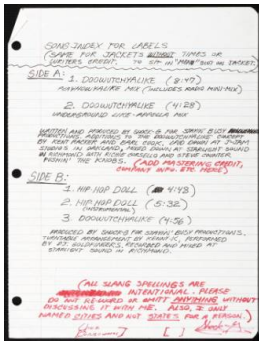 SONG INDEX FOR LABELS.
(SAME FOR JACKETS WITHOUT TIMES OR
WRITERS CREDIT. TO SIT IN "MIDDLE" DIRT ON JACKET.
SIDE A:
1. DOOWUTCHYALIKE (8:47)
MIXHOWYALIKE MIX (INCLUDES RADIO MINI-MIX)
2. DOOWUTCHYALIKE (4:28)
UNDERGROUND LIKE-APPELLA MIX
WRITTEN AND PRODUCED BY SHOCK-G FOR STATIC BUSY
PRODUCTIONS. ADDITIONS TO THE DOOWUTCHYALIKE CONCEPT
BY KENT RACKER AND EARL COOK. LAID DOWN AT J-JAM
STUDIOS IN OAKLAND, MIXED DOWN AT STARLIGHT SOUND
IN RICHMOND WITH RICHIE AND STEVE COUNTER
WORKIN' THE KNOBS. (ADD MASTERING CREDIT,
COMPANY INFO. ETC. HERE)
SIDE B:
1. HIP HOP DOLL 4:43)
2. HIP HOP DOLL (5:32)
(INSTRUMENTAL)
3. DOOWUTCHYALIKE (4:56)
PRODUCED BY SHOCK-G FOR STATIC BUSY PRODUCTIONS.
TURNTABLE ARRANGEMENT BY KENNY-K, PERFORMED
BY D.J. GOLDFINGERS. RECORDED AND MIXED AT
STARLIGHT SOUND IN RICHMOND.
(ALL SLANG SPELLINGS ARE
INTENTIONAL. PLEASE
DO NOT RE-WORD OR OMITT ANYTHING WITHOUT
DISCUSSING IT WITH ME. ALSO, I ONLY
NAMED CITIES AND NOT STATES FOR A REASON.)
Shock-G